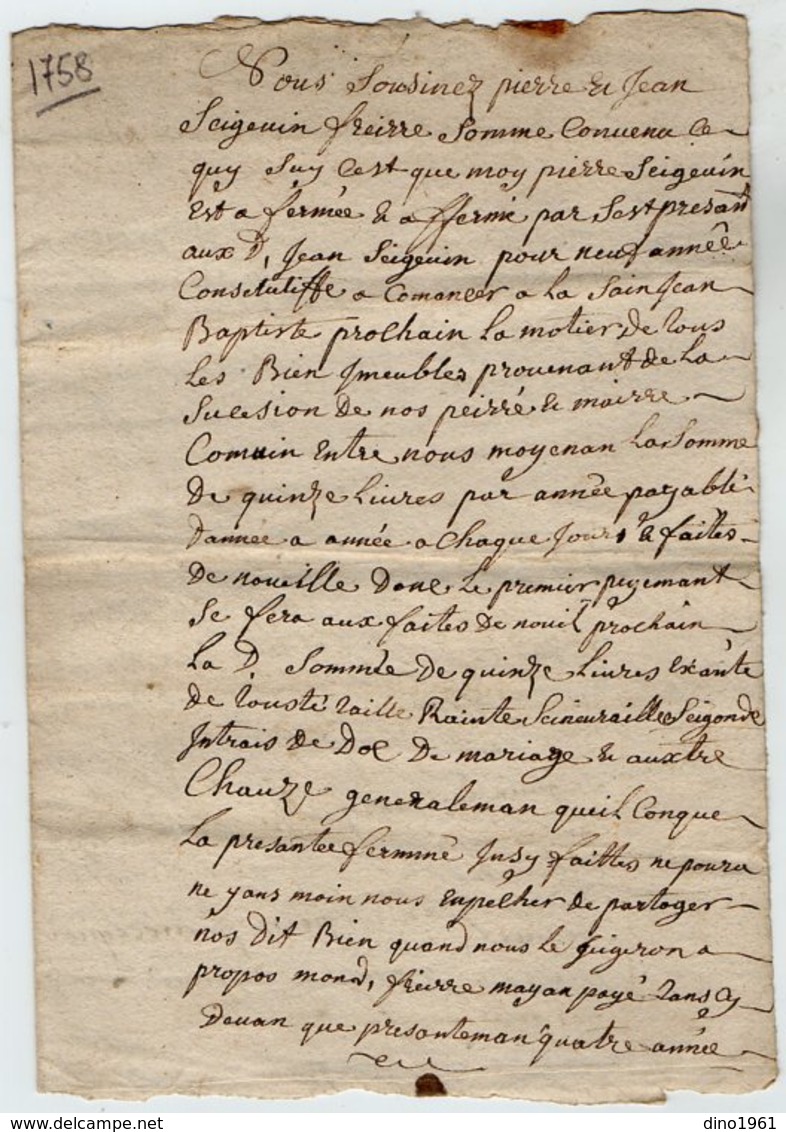 1758
Nous Sousinez pierre & Jean
Seigevin freirre Somme Convenu Ce
quy Suy Cest que moy pierre Seigevin
Est a fermée & affermé par Sest presant
aux D, Jean Seigevin pour neuf année
Consetutiffe a Comancer a La Sain Jean
Baptiste prochain La motier de tous
Les Bien Jmeubles provenant de La
Sucesion De nos peirré & mairre
Comuin Entre nous moyenan La Somme
De quinze Livres par année payable
Dannee a année a Chaque Jours & faites
De noueille Donc Le premier peyemant
Se fera aux faites De nouil prochain
La D. Sommée De quinze Livres Exante
De tousté taille Rainte Seineuraille Seigonde
Jntrais De Dol De mariage & auxtre
Chauze generaleman queil Conque
La presantee fermine Jusy faittes ne poura
ne yans moin nous Enpecher De partager
nos Dit Bien quand nous Le Jeigeron a
propos mond, freirre mayan payé tans Cy
Devan que presanteman quatre année
dino1961